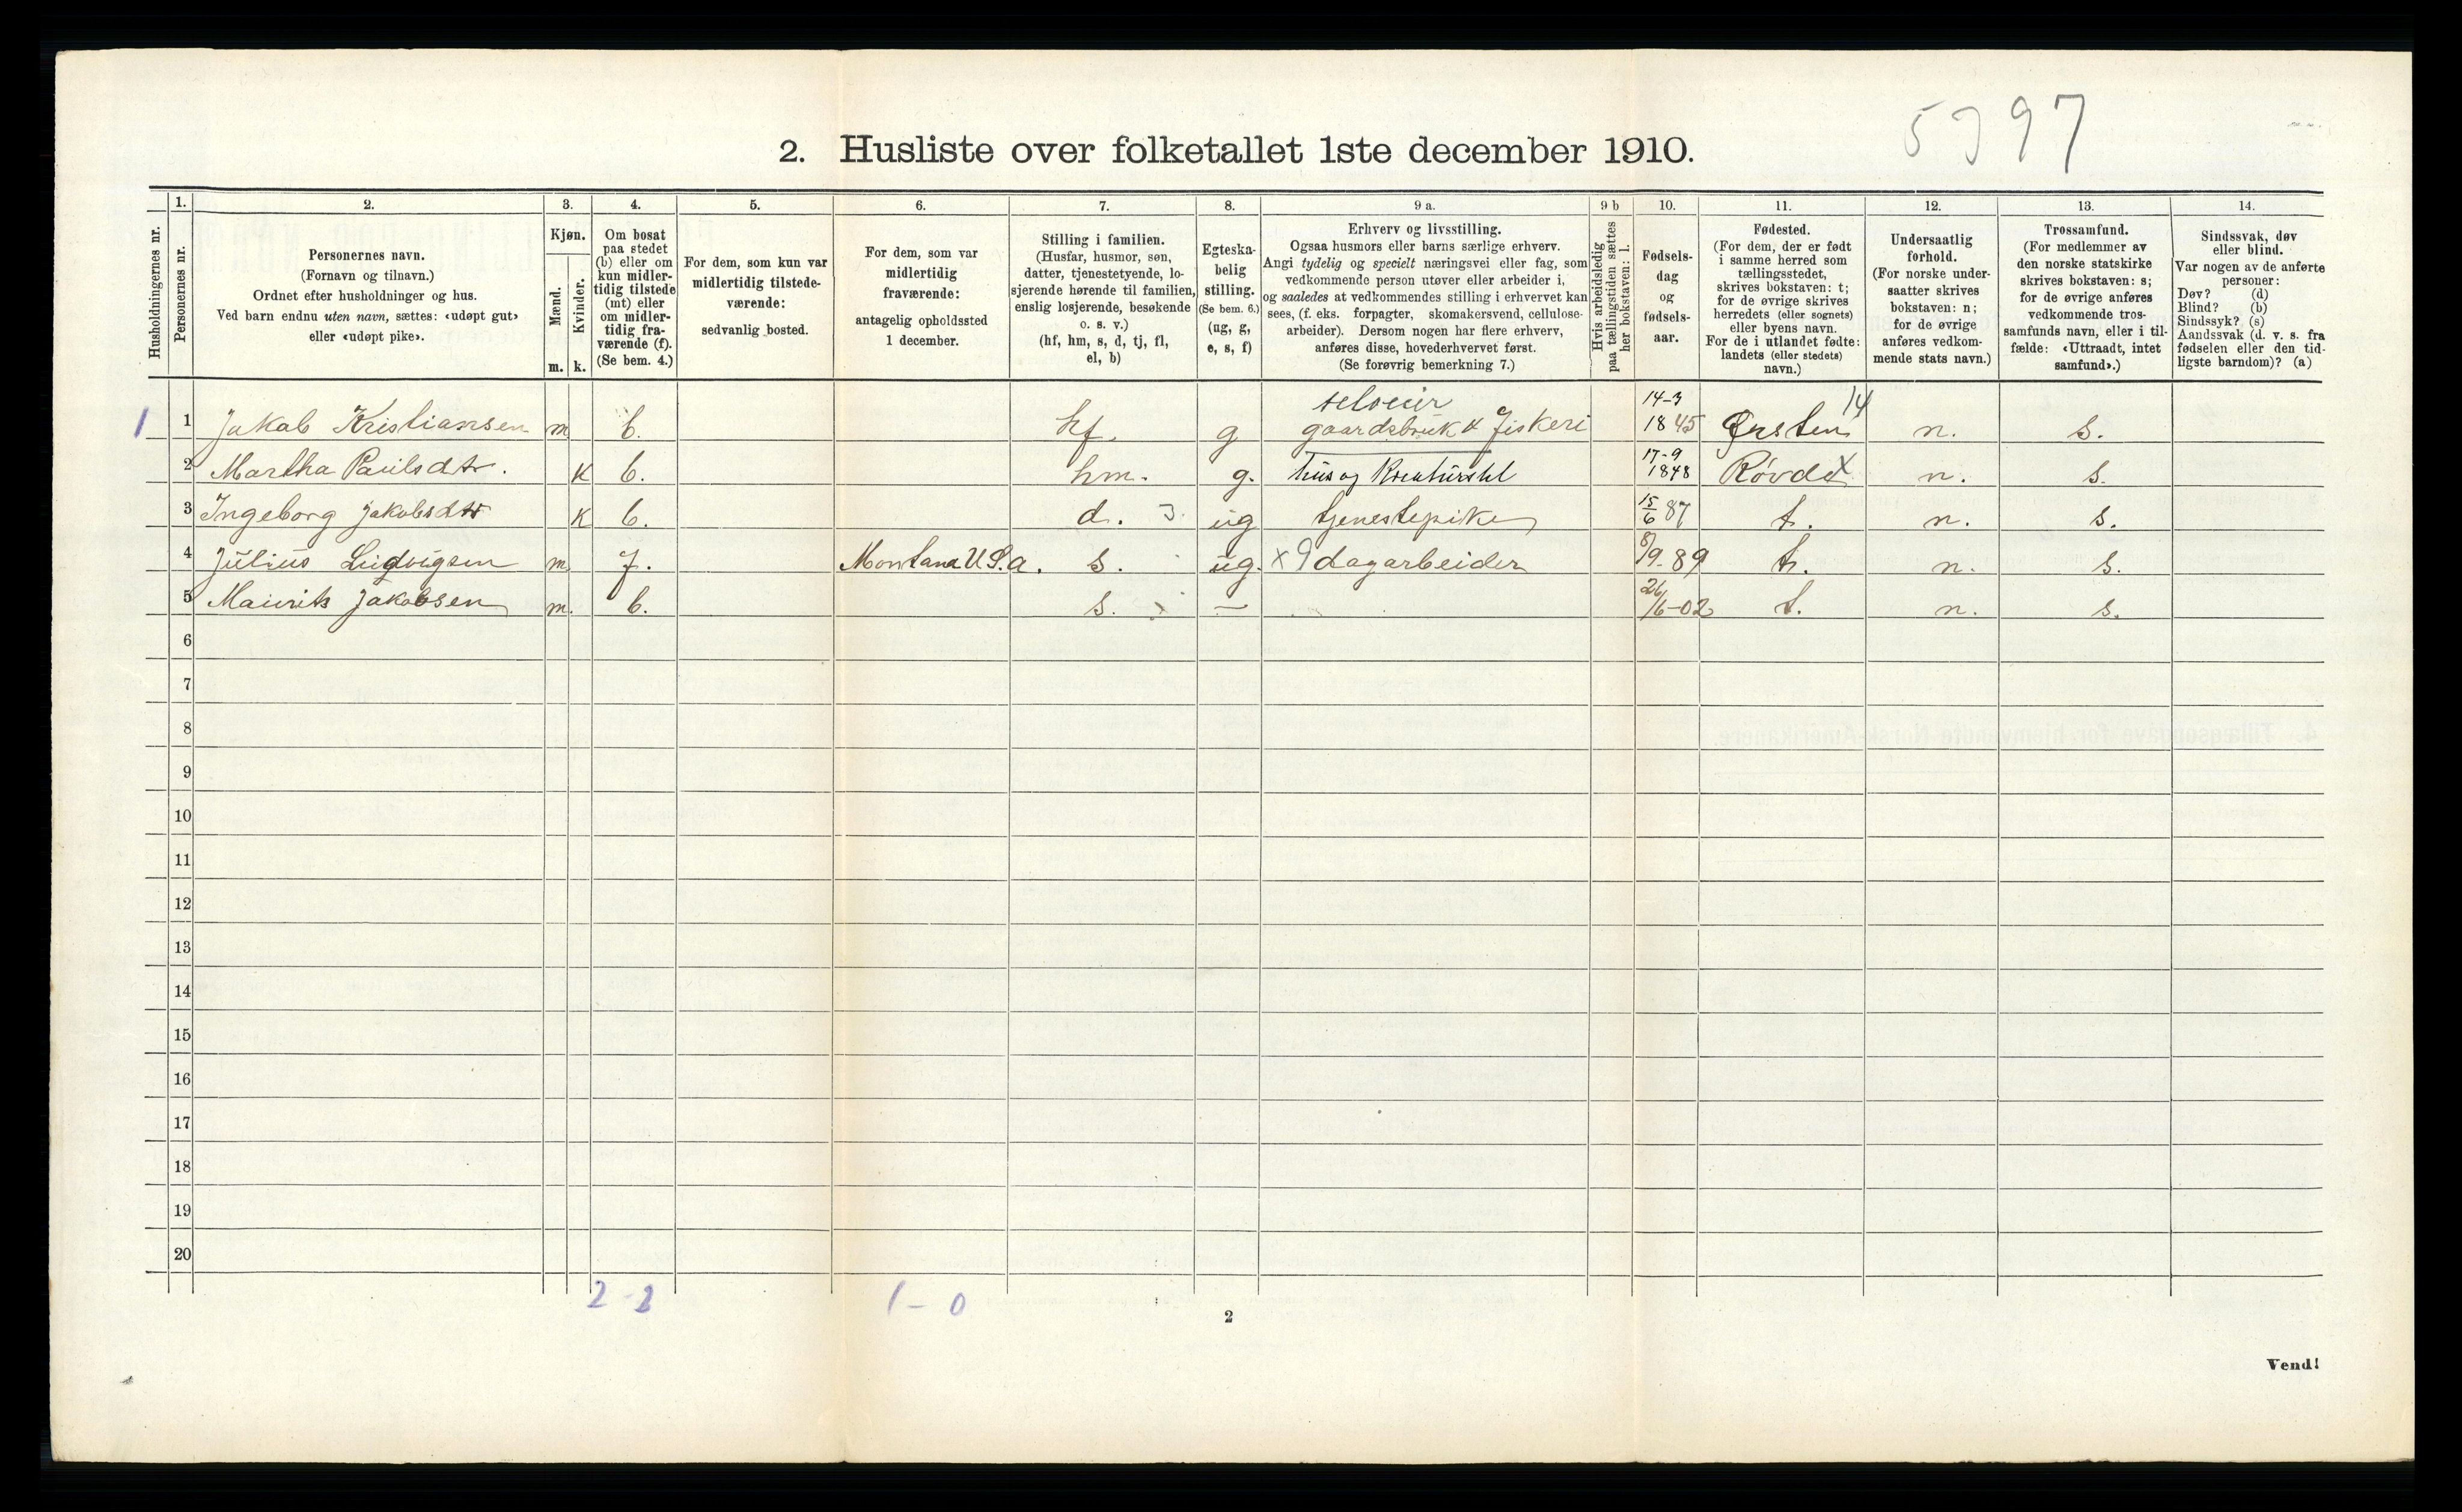 5997
2. Husliste over folketallet 1ste december 1910.
Husholdningernes nr.
1.
Personernes nr.
2.
Personernes navn.
(Fornavn og tilnavn.)
Ordnet efter husholdninger og hus.
Ved barn endnu uten navn, sættes: «udøpt gut»
eller «udøpt pike».
3.
Kjøn.
Mænd.
Kvinder.
m. k.
4.
Om bosat
paa stedet
(b) eller om
kun midler-
tidig tilstede
(mt) eller
om midler-
tidig fra-
værende (f).
(Se bem. 4.)
5.
For dem, som kun var
midlertidig tilstede-
værende:
sedvanlig bosted.
6.
For dem, som var
midlertidig
fraværende:
antagelig opholdssted
1 december.
7.
Stilling i familien.
(Husfar, husmor, søn,
datter, tjenestetyende, lo-
sjerende hørende til familien,
enslig losjerende, besøkende
o. s. v.)
(hf, hm, s, d, tj, fl,
el, b)
8.
Egteska-
belig
stilling.
(Se bem. 6.)
(ug, g,
e, s, f)
9 a.
Erhverv og livsstilling.
Ogsaa husmors eller barns særlige erhverv.
Angi tydelig og specielt næringsvei eller fag, som
vedkommende person utøver eller arbeider i,
og saaledes at vedkommendes stilling i erhvervet kan
sees, (f. eks. forpagter, skomakersvend, cellulose-
arbeider). Dersom nogen har flere erhverv,
anføres disse, hovederhvervet først.
(Se forøvrig bemerkning 7.)
9 b
Hvis arbeidsledig
paa tællingstiden sættes
her bokstaven: l.
10.
Fødsels-
dag
og
fødsels-
aar.
11.
Fødested.
(For dem, der er født
i samme herred som
tællingsstedet,
skrives bokstaven: t;
for de øvrige skrives
herredets (eller sognets)
eller byens navn.
For de i utlandet fødte:
landets (eller stedets)
navn.)
12.
Undersaatlig
forhold.
(For norske under-
saatter skrives
bokstaven: n;
for de øvrige
anføres vedkom-
mende stats navn.)
13.
Trossamfund.
(For medlemmer av
den norske statskirke
skrives bokstaven: s;
for de øvrige anføres
vedkommende tros-
samfunds navn, eller i til-
fælde: «Uttraadt, intet
samfund».)
14.
Sindssvak, døv
eller blind.
Var nogen av de anførte
personer:
Døv? (d)
Blind? (b)
Sindssyk? (s)
Aandssvak (d. v. s. fra
fødselen eller den tid-
ligste barndom)? (a)
seloeier 14-3 14
1 1 Jakob Kristiansen m b. hf. g gaardsbruk & fiskeri 1845 Ørsten n. s.
2 Martha Paulsdtr. k b. hm. g. hus og kreaturstel 17-9 1848 Røvde x n. s.
3 Ingeborg Jakobsdtr k b. d. ug tjenestepike 15/6 87 t. n. s.
4 Julius Ludvigsen m f. Montana U.S.a. s. ug. x 9 dagarbeider 8/9-89 t. n. s.
5 Maurits Jakobsen m. b. s. — 26/6-02 t. n. s.
6
7
8
9
10
11
12
13
14
15
16
17
18
19
20
2-2 1-0
2
Vend!